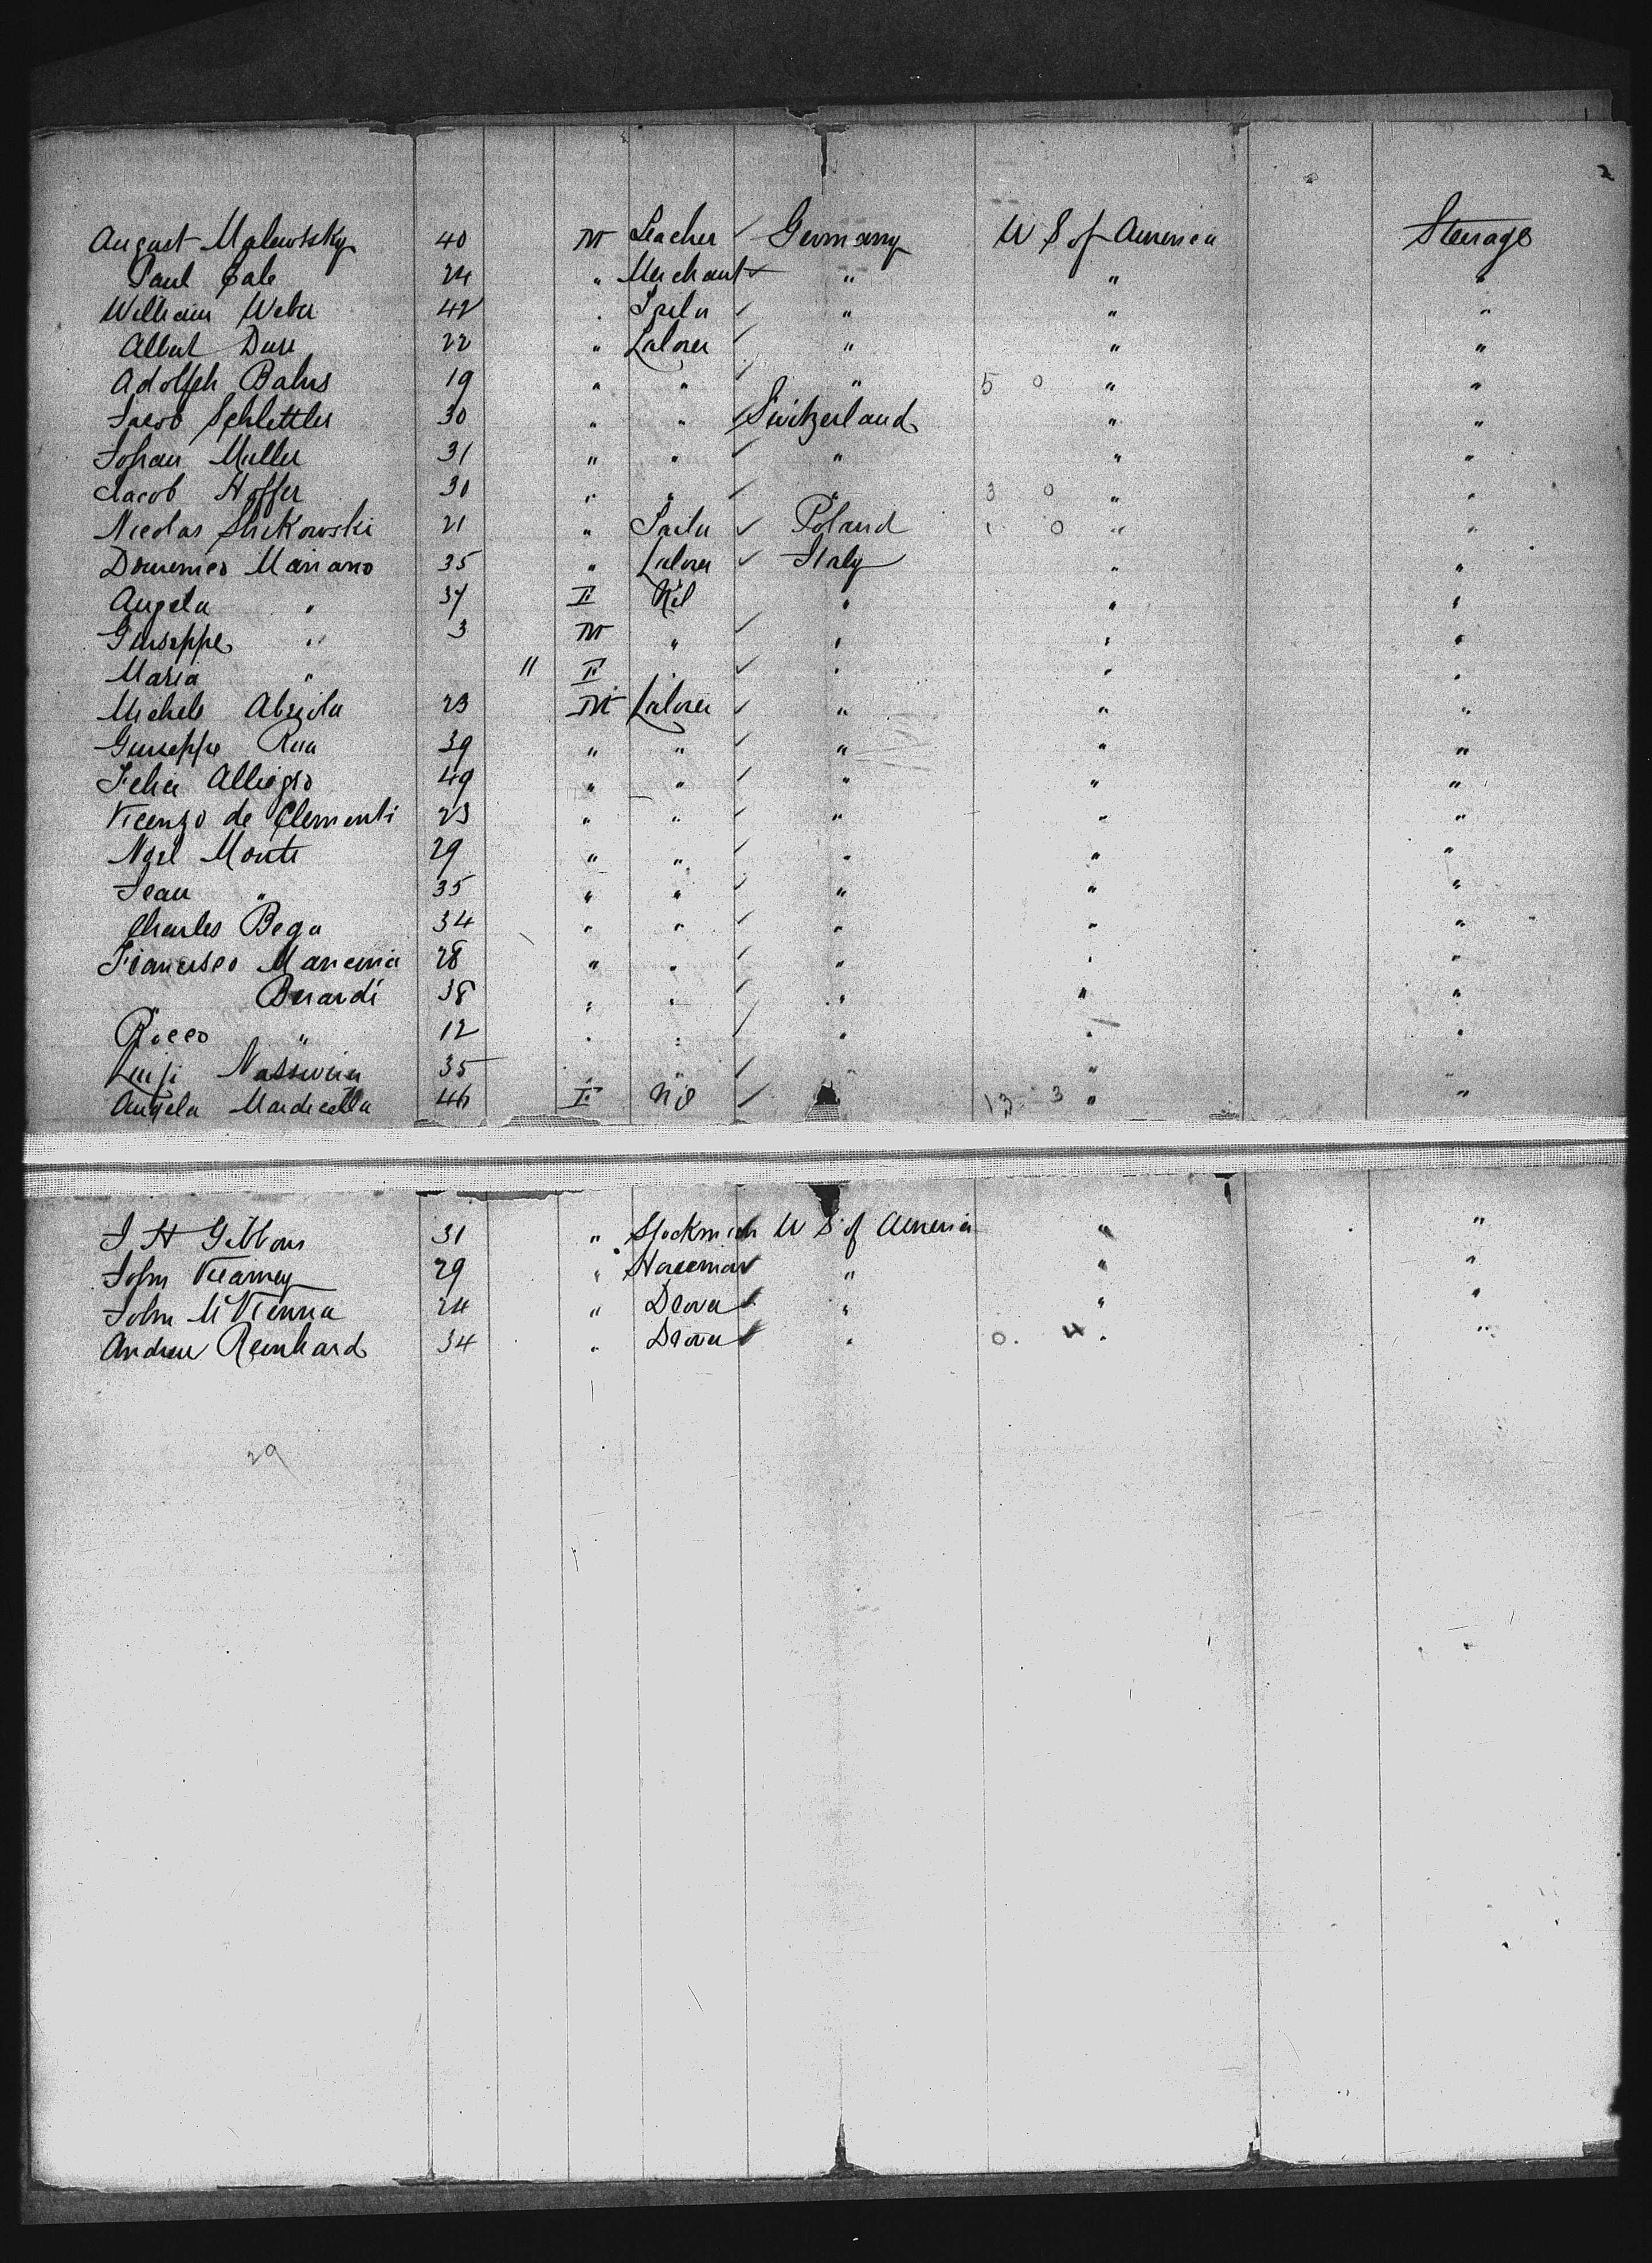 2
August Malewsky 40 M Teacher ✓ Germany U S of America Steerage
Paul Cale 24 " Merchant ✓ " " "
William Weber 42 " Tailor ✓ " " "
Albert Dure 22 " Laborer ✓ " " "
Adolph Bahrs 19 " " ✓ " 5 0 " "
Jacob Schlettler 30 " " ✓ Switzerland " "
Johan Muller 31 " " ✓ " " "
Jacob Hoffer 30 " " ✓ " 3 0 " "
Nicolas 21 " Tailor ✓ Poland 1 0 " "
Domenico Mariano 35 " Laborer ✓ Italy " "
Angela " 37 F Nil " " "
Giuseppe " 3 M " ✓ " " "
Maria " 11 F " ✓ " " "
Michele Abriola 23 M Laborer ✓ " " "
Giuseppe Rua 39 " " ✓ " " "
Felice Alliegro 49 " " ✓ " " "
Vicenzo de Clementi 23 " " ✓ " " "
Noel Monti 29 " " ✓ " " "
Jean " 35 " " ✓ " " "
Charles Bega 34 " " ✓ " " "
Francisco Mancina 28 " " ✓ " " "
" Berardi 38 " " ✓ " " "
Rocco " 12 " " ✓ " " "
Luigi 35 " " ✓ " "
Angela Mardicella 46 F Nil ✓ 13 3 " "
J H Gibbons 31 " Stockman U S of America " "
John Kearney 29 " Horseman ✓ " " "
John McKenna 24 " Drover ✓ " " "
Andrew Reinhard 34 " Drover ✓ " 0. 4 " "
29